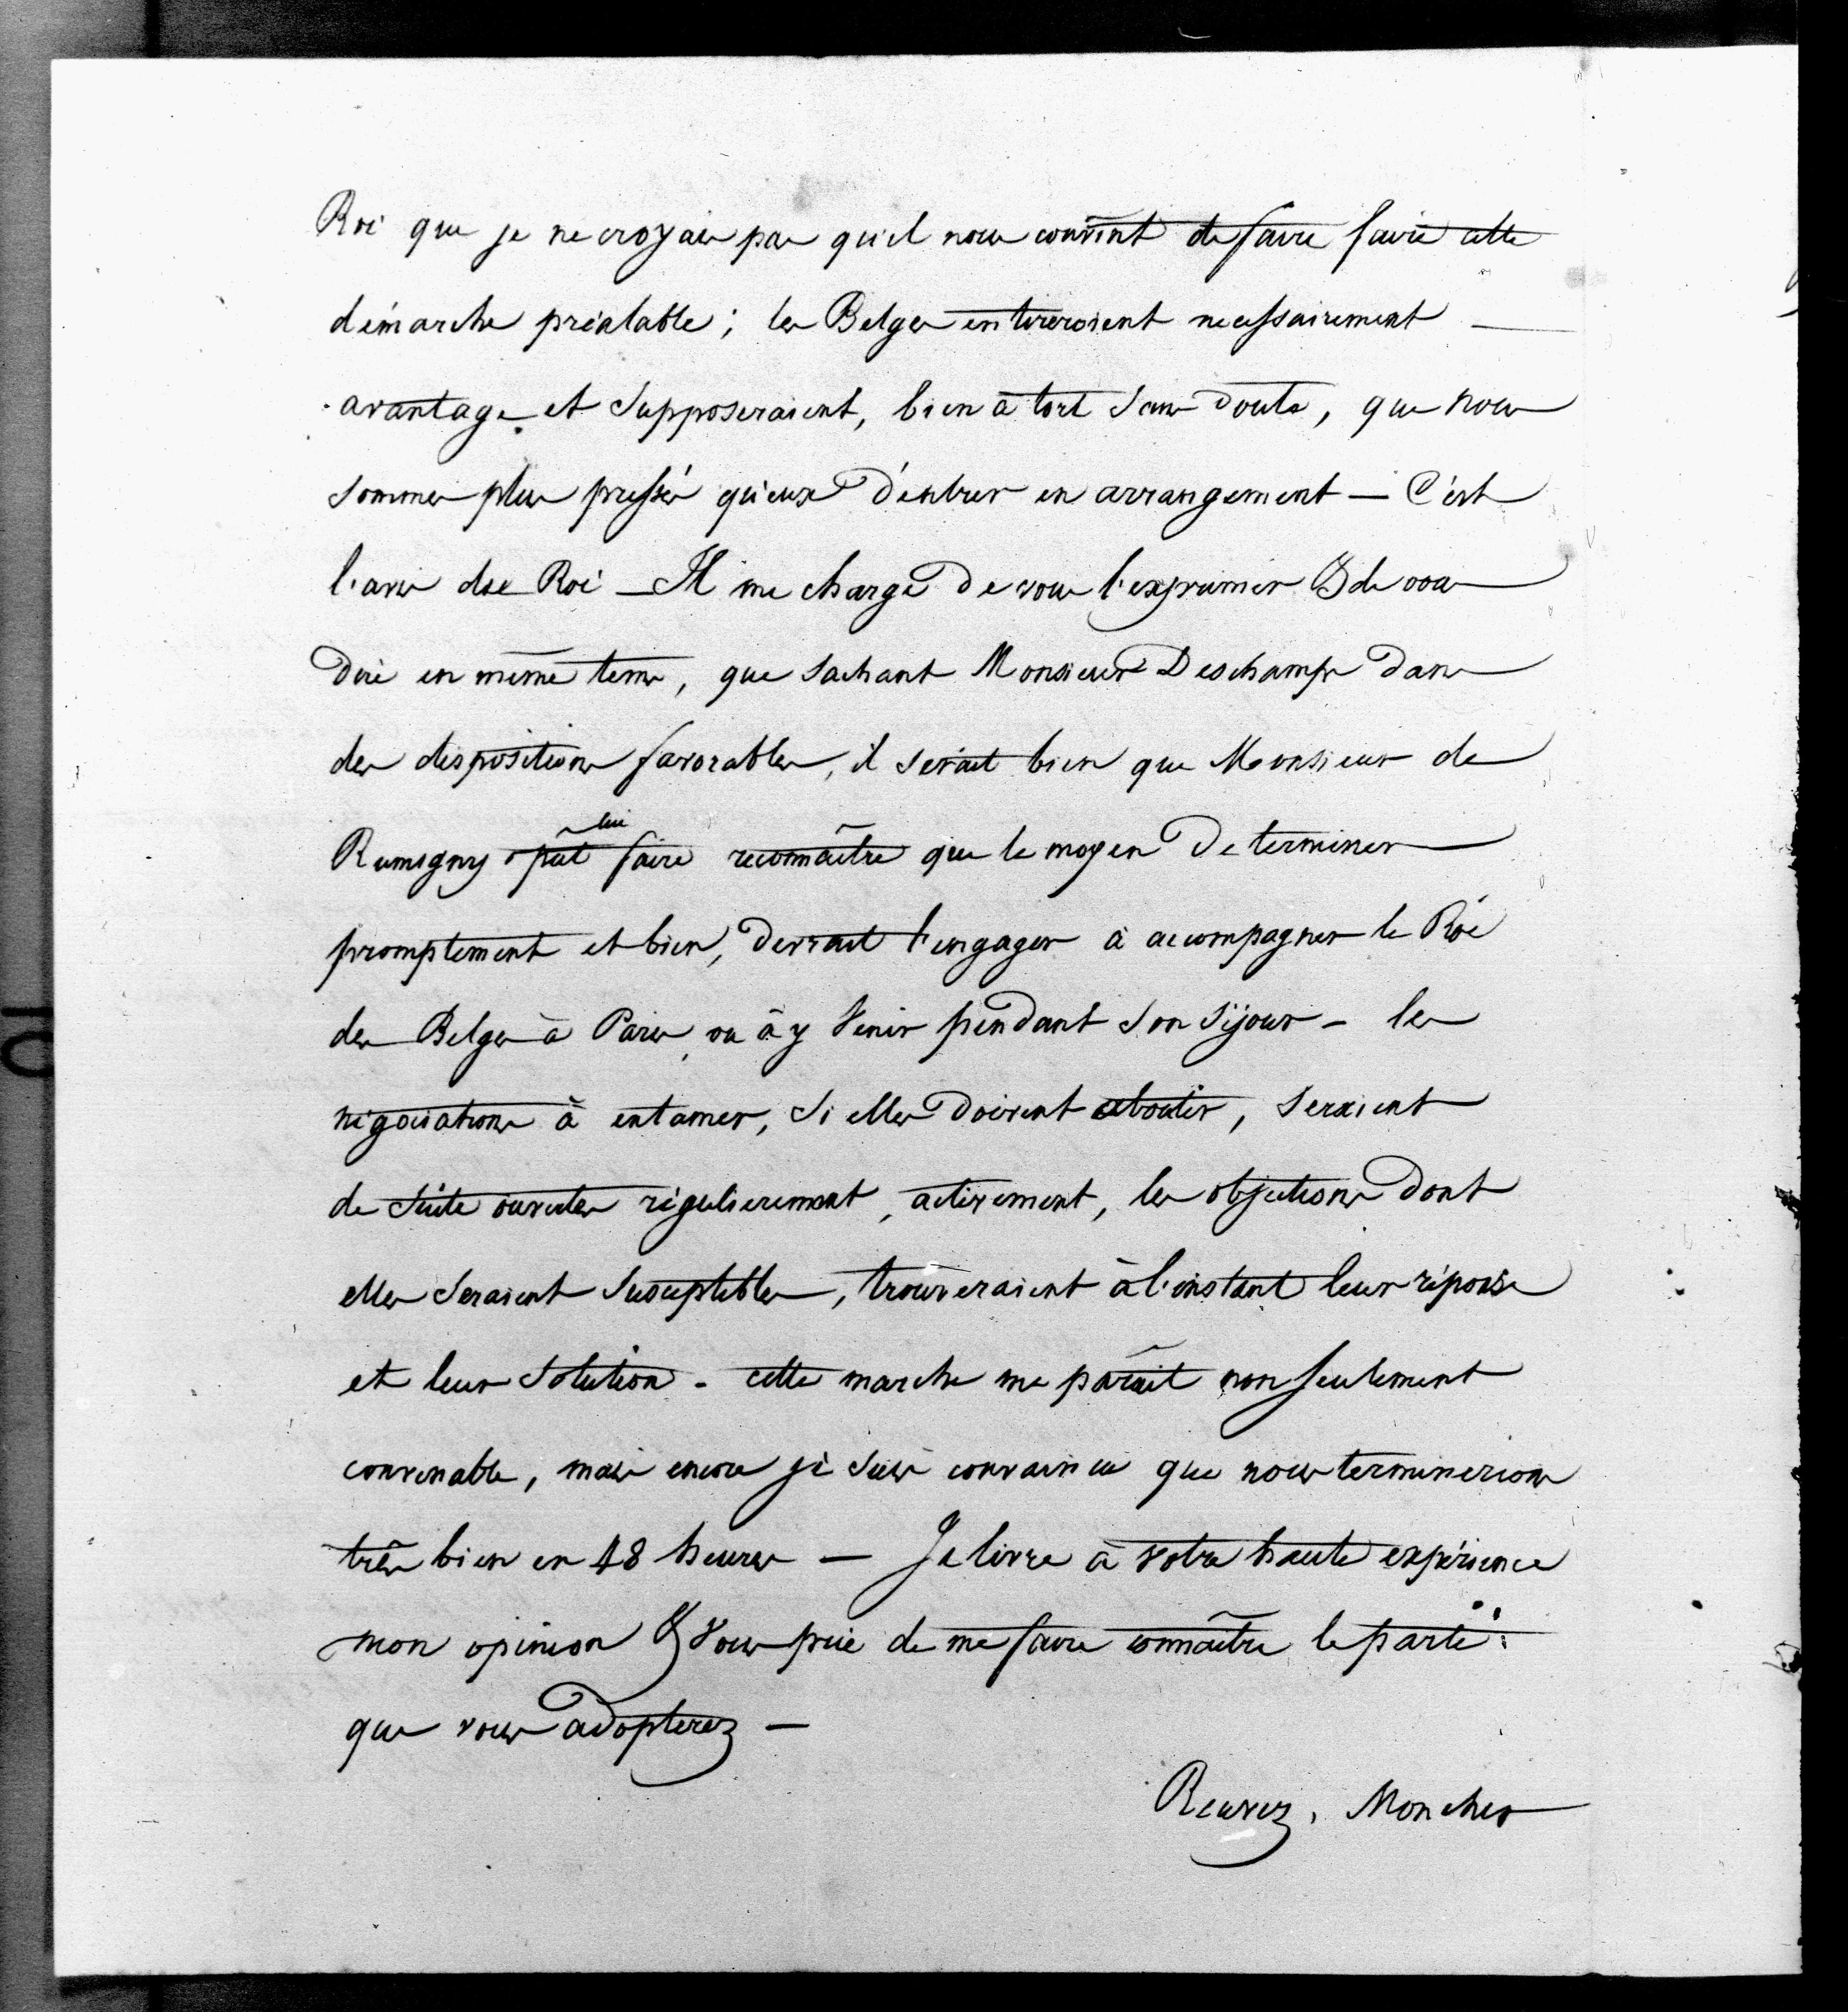 Roi que je ne croyais pas qu'il nous convint de faire faire cette
démarche préalable; les Belges en tireroient necessairement —
avantage et supposeraient, bien à tort sans doute, que nous
sommes plus pressés qu'eux d'entrer en arrangement — C'est
l'avis du Roi — Il me charge de vous l'exprimer & de vous
dire en même tems, que sachant Monsieur Deschamps dans
des dispositions favorables, il serait bien que Monsieur de
Rumigny pût lui faire reconnaître que le moyen de terminer
promptement et bien, devrait l'engager à accompagner le Roi
des Belges à Paris, ou à y venir pendant son séjour — les
négociations à entamer, si elles doivent aboutir, seraient
de suite ouvertes régulierement, activement, les objections dont
elles seraient susceptibles, trouveraient à l'instant leur réponse
et leur solution. cette marche me paraît non seulement
convenable, mais encore je suis convaincu que nous terminerions
très bien en 48 heures — Je livre à votre haute expérience
mon opinion & vous prie de me faire connaître le parti
que vous adopterez —
Recevez, Mon cher